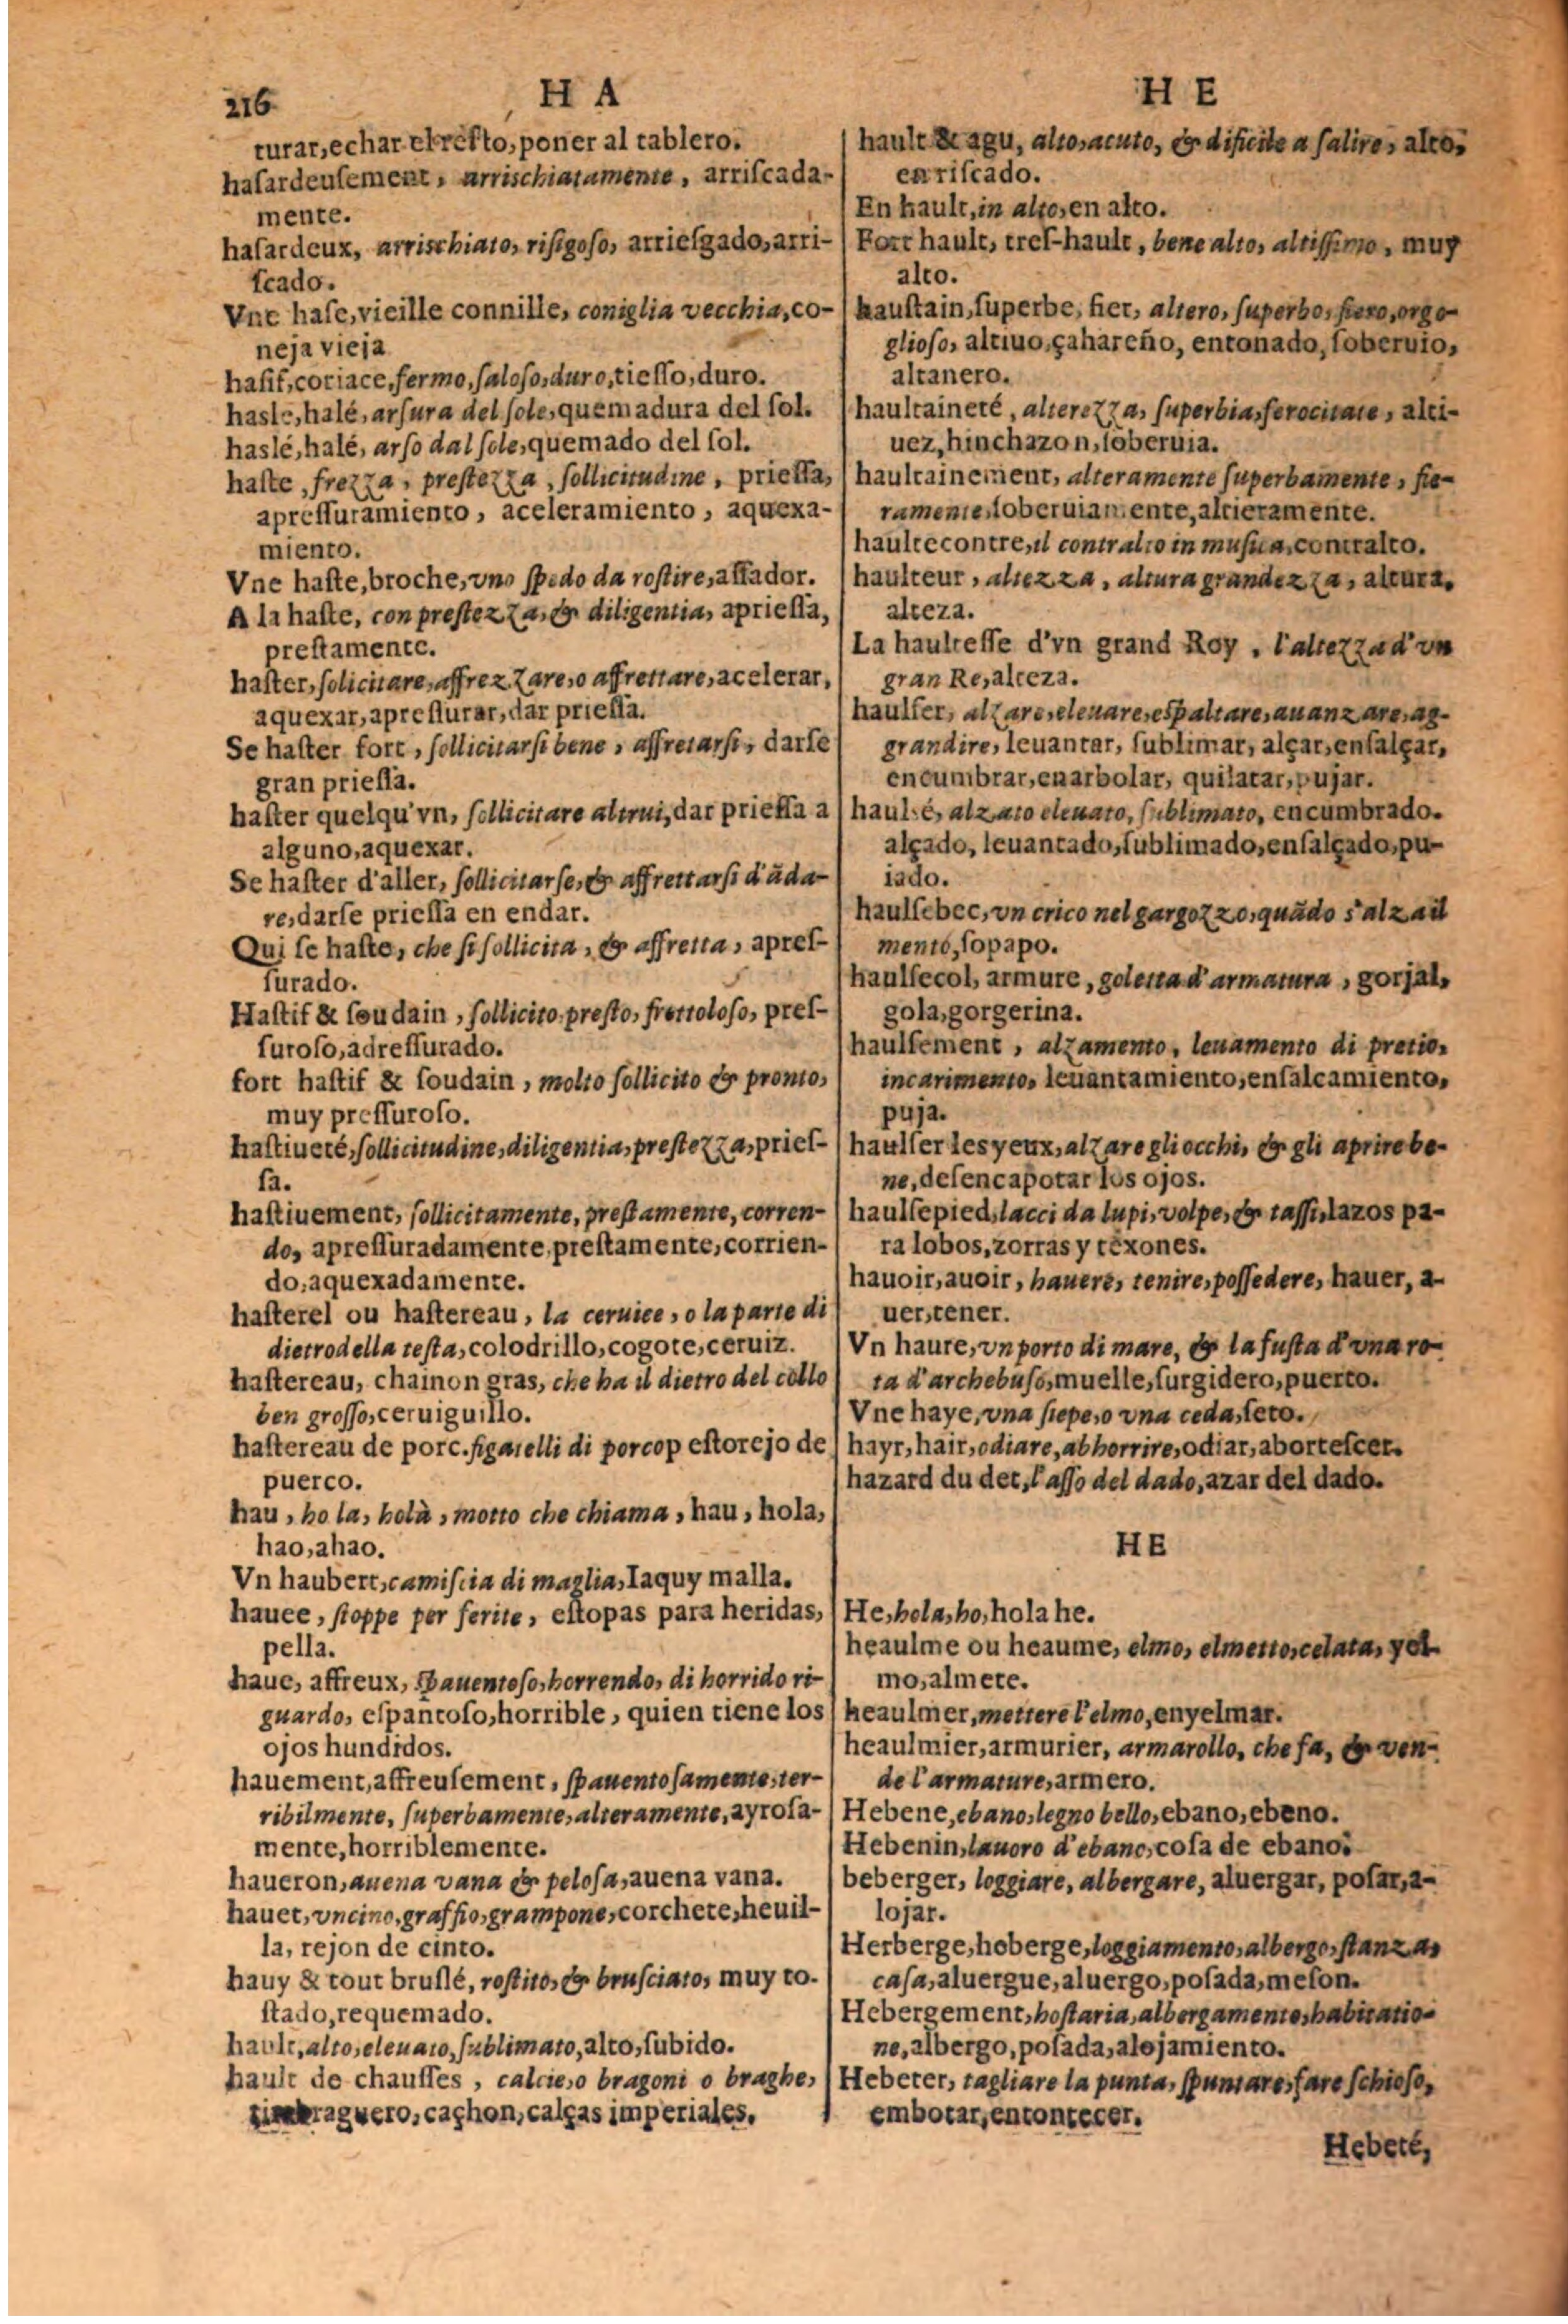 216
H A
turar,echar el resto,poner al tablero.
haſardeuſement, arriſchiatamente, arriſcada-
mente.
haſardeux, arriſchiato, riſigoſo, arrieſgado,arri-
ſcado.
Vne haſe,vieille connille, coniglia vecchia,co-
neja vieja
haſif,coriace,fermo,ſaloſo,duro,tieſſo,duro.
hasle,halé,arſura del ſole,quemadura del ſol.
haslé,halé, arſo dal ſole,quemado del ſol.
haſte,frezza, preſtezza, ſollicitudine, prieſſa,
apreſſuramiento, aceleramiento, aquexa-
miento.
Vne haſte,broche,vno ſpedo da roſtire,aſſador.
A la haſte, con preſtezza,& diligentia, aprieſſa,
preſtamente.
haſter,ſolicitare,affrezzare,o affrettare,acelerar,
aquexar,apreſſurar,dar prieſſa.
Se haſter fort, ſollicitarſi bene, affretarſi, darſe
gran prieſſa.
haſter quelqu'vn, ſollicitare altrui,dar prieſſa a
alguno,aquexar.
Se haſter d'aller, ſollicitarſe,& affrettarſi d'āda-
re,darſe prieſſa en endar.
Qui ſe haſte, che ſi ſollicita, & affretta, apreſ-
ſurado.
Haſtif & ſoudain, ſollicito,preſto, frettoloſo, preſ-
ſuroſo,adreſſurado.
fort haſtif & ſoudain, molto ſollicito & pronto,
muy preſſuroſo.
haſtiueté,ſollicitudine,diligentia,preſtezza,prieſ-
ſa.
haſtiuement, ſollicitamente, preſtamente, corren-
do, apreſſuradamente,preſtamente,corrien-
do,aquexadamente.
haſterel ou haſtereau, la ceruice, o la parte di
dietrodella teſta,colodrillo,cogote,ceruiz.
haſtereau, chainon gras, che ha il dietro del collo
ben groſſo,ceruiguillo.
haſtereau de porc.figatelli di porcop eſtorejo de
puerco.
hau, ho la, holà, motto che chiama, hau, hola,
hao,ahao.
Vn haubert,camiſcia di maglia,Iaquy malla.
hauee, ſtoppe per ferite, eſtopas para heridas,
pella.
haue, affreux, ſpauentoſo,horrendo, di horrido ri-
guardo, eſpantoſo,horrible, quien tiene los
ojos hundidos.
hauement,affreuſement, ſpauentoſamente,ter-
ribilmente, ſuperbamente,alteramente,ayroſa-
mente,horriblemente.
haueron,auena vana & peloſa,auena vana.
hauet,vncino,graffio,grampone,corchete,heuil-
la, rejon de cinto.
hauy & tout bruſlé, roſtito,& bruſciato, muy to-
ſtado,requemado.
hault,alto,eleuato,ſublimato,alto,ſubido.
hault de chauſſes, calcie,o bragoni o braghe,
cachon,calças imperiales.
H E
hault & agu, alto,acuto, & dificile a ſalire, alto,
enriſcado.
En hault,in alto,en alto.
Fort hault, treſ-hault, bene alto, altiſſimo, muy
alto.
haustain,ſuperbe, fier, altero, ſuperbo, fiero,orgo-
glioſo, altiuo,çahareño, entonado, ſoberuio,
altanero.
haultaineté, alterezza, ſuperbia,ferocitate, alti-
uez,hinchazon,ſoberuia.
haultainement, alteramente ſuperbamente, fie-
ramente,ſoberuiamente,altieramente.
haultecontre,il contralto in muſica,contralto.
haulteur, altezza, altura grandezza, altura,
alteza.
La haulteſſe d'vn grand Roy, l'altezza d'vn
gran Re,alteza.
haulſer, alzare,eleuare,eſpaltare,auanzare,ag-
grandire, leuantar, ſublimar, alçar,enſalçar,
encumbrar,enarbolar, quilatar,pujar.
haulſé, alzato eleuato, ſublimato, encumbrado.
alçado, leuantado,ſublimado,enſalçado,pu-
iado.
haulſebec,vn crico nel gargozzo,quādo s'alza il
mento,ſopapo.
haulſecol, armure, goletta d'armatura, gorjal,
gola,gorgerina.
haulſement, alzamento, leuamento di pretio,
incarimento, leuantamiento,enſalcamiento,
puja.
haulſer les yeux,alzare gli occhi, & gli aprire be-
ne,deſencapotar los ojos.
haulſepied,lacci da lupi,volpe,& taſſi,lazos pa-
ra lobos,zorras y texones.
hauoir,auoir, hauere, tenire,poſſedere, hauer, a-
uer,tener.
Vn haure,vn porto di mare, & la fuſta d'vna ro-
ta d'archebuſo,muelle,ſurgidero,puerto.
Vne haye,vna ſiepe,o vna ceda,ſeto.
hayr,hair,odiare,abhorrire,odiar,abortecer.
hazard du det,l'aſſo del dado,azar del dado.
HE
He,hola,ho,hola he.
heaulme ou heaume, elmo, elmetto,celata, yel-
mo,almete.
heaulmer,mettere l'elmo,enyelmar.
heaulmier,armurier, armarollo, che fa, & ven-
de l'armature,armero.
Hebene,ebano,legno bello,ebano,ebeno.
Hebenin,lauoro d'ebano,coſa de ebano.
beberger, loggiare, albergare, aluergar, poſar,a-
lojar.
Herberge,heberge,loggiamento,albergo,ſtanza,
caſa,aluergue,aluergo,poſada,meſon.
Hebergement,hoſtaria,albergamento,habitatio-
ne,albergo,poſada,alojamiento.
Hebeter, tagliare la punta, ſpuntare,fare ſchioſo,
embotar,entontecer.
Hebeté,